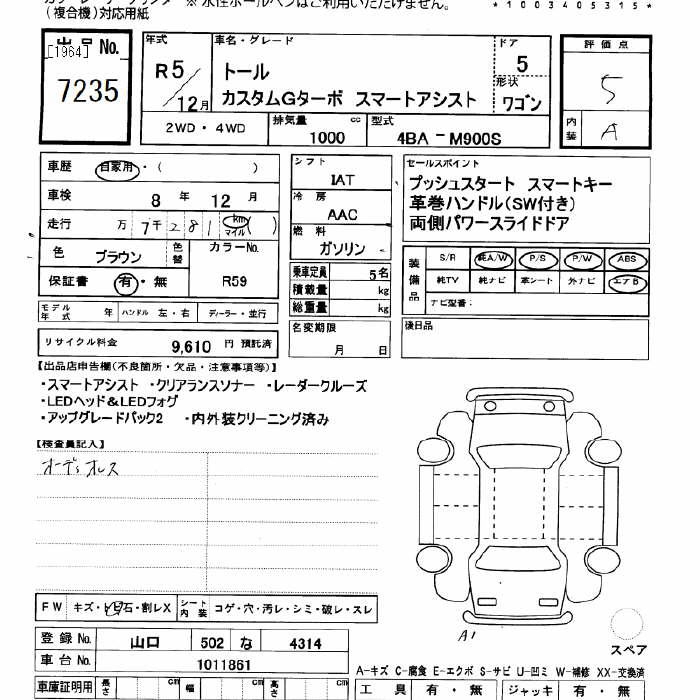 (複合機)対応用紙 ※ 水性ボールペンはご利用いただけません。
*1003405315*
出品 No.
[1964]
7235
年式 R5/12月
車名・グレード
トール
カスタムGターボ スマートアシスト
ドア 5
形状 ワゴン
2WD・4WD 排気量 1000 cc 型式 4BA-M900S
評価点 5
内装 A
車歴 自家用・( )
車検 8 年 12 月
走行 万 7千281 km マイル ( )
色 ブラウン 色替 カラーNo.
保証書 有・無 R59
モデル年式 年 ハンドル 左・右 ディーラー・並行
リサイクル料金 9,610 円 預託済
シフト
IAT
冷房
AAC
燃料
ガソリン
乗車定員 5名
積載量 kg
総重量 kg
名変期限
月 日
セールスポイント
プッシュスタート スマートキー
革巻ハンドル(SW付き)
両側パワースライドドア
装備品
S/R 純A/W P/S P/W ABS
純TV 純ナビ 革シート 外ナビ エアB
ナビ型番:
後日品
【出品店申告欄(不良箇所・欠品・注意事項等)】
・スマートアシスト ・クリアランスソナー ・レーダークルーズ
・LEDヘッド&LEDフォグ
・アップグレードパック2 ・内外装クリーニング済み
【検査員記入】
オーディオレス
FW キズ・飛石・割レX シート内装 コゲ・穴・汚レ・シミ・破レ・スレ
登録 No. 山口 502 な 4314
車台 No. 1011861
車庫証明用 長さ cm 幅 cm 高さ cm
A1
スペア
A-キズ C-腐食 E-エクボ S-サビ U-凹ミ W-補修 XX-交換済
工具 有・無 ジャッキ 有・無